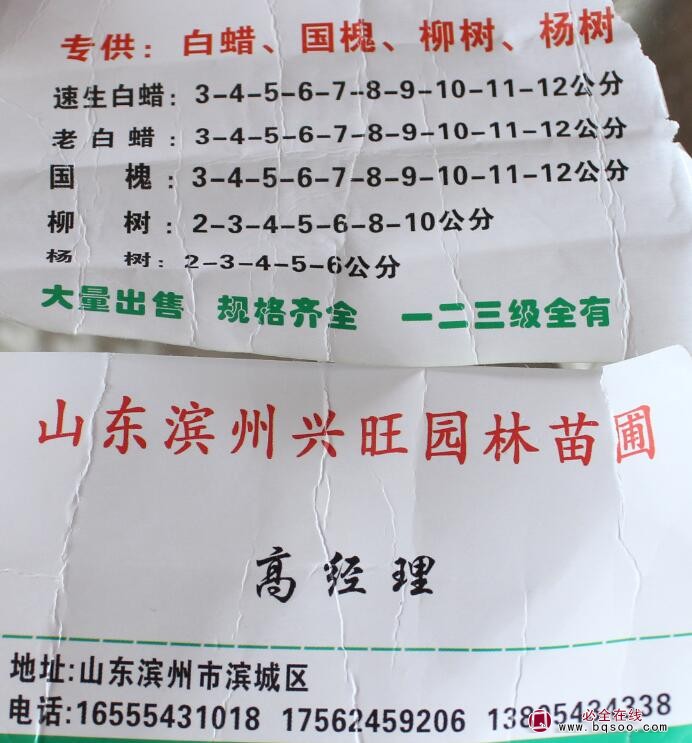 专供：白蜡、国槐、柳树、杨树
速生白蜡：3-4-5-6-7-8-9-10-11-12公分
老白蜡：3-4-5-6-7-8-9-10-11-12公分
国槐：3-4-5-6-7-8-9-10-11-12公分
柳树：2-3-4-5-6-8-10公分
杨树：2-3-4-5-6公分
大量出售 规格齐全 一二三级全有
山东滨州兴旺园林苗圃
高经理
地址:山东滨州市滨城区
电话:16555431018 17562459206
必全在线
www.bqsoo.com